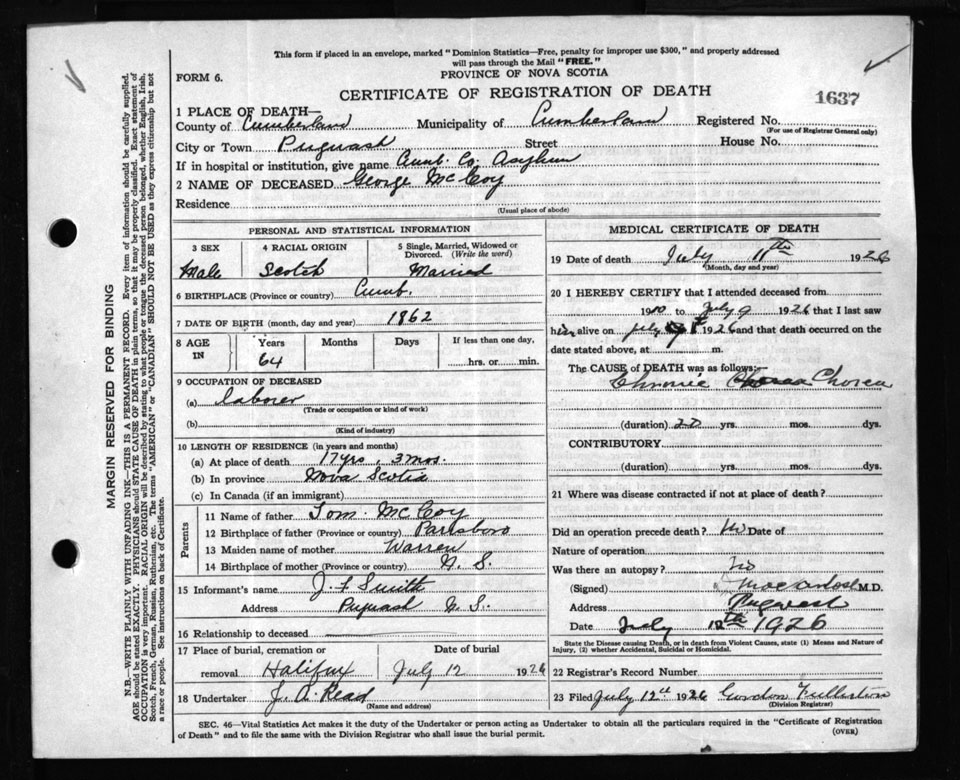 This form if placed in an envelope, marked "Dominion Statistics—Free, penalty for improper use $300," and properly addressed
will pass through the Mail "FREE."
FORM 6.
PROVINCE OF NOVA SCOTIA
CERTIFICATE OF REGISTRATION OF DEATH
1637
1 PLACE OF DEATH—
County of Cumberland Municipality of Cumberland Registered No.
(For use of Registrar General only)
City or Town Pugwash Street House No.
If in hospital or institution, give name Cumb. Co. Asylum
2 NAME OF DECEASED George McCoy
Residence
(Usual place of abode)
MARGIN RESERVED FOR BINDING
N.B.—WRITE PLAINLY WITH UNFADING INK—THIS IS A PERMANENT RECORD. Every item of information should be carefully supplied.
AGE should be stated EXACTLY. PHYSICIANS should STATE CAUSE OF DEATH in plain terms, so that it may be properly classified. Exact statement of
OCCUPATION is very important. RACIAL ORIGIN will be described by stating to what people or tongue the deceased person belonged, whether English, Irish,
Scotch, French, German, Russian, Ruthenian, etc. The terms "AMERICAN" or "CANADIAN" SHOULD NOT BE USED as they express citizenship but not
a race or people. See instructions on back of Certificate.
PERSONAL AND STATISTICAL INFORMATION
3 SEX 4 RACIAL ORIGIN 5 Single, Married, Widowed or
Divorced. (Write the word)
Male Scotch Married
6 BIRTHPLACE (Province or country) Cumb.
7 DATE OF BIRTH (month, day and year) 1862
8 AGE IN Years Months Days If less than one day,
64 hrs. or min.
9 OCCUPATION OF DECEASED
(a) laborer
(Trade or occupation or kind of work)
(b)
(Kind of industry)
10 LENGTH OF RESIDENCE (in years and months)
(a) At place of death 17 yrs, 3 mos.
(b) In province Nova Scotia
(c) In Canada (if an immigrant)
Parents
11 Name of father Tom McCoy
12 Birthplace of father (Province or country) Parrsboro
13 Maiden name of mother Warren
14 Birthplace of mother (Province or country) N. S.
15 Informant's name J. F Smith
Address Pugwash N. S.
16 Relationship to deceased
17 Place of burial, cremation or Date of burial
removal Halifax July 12 1926
18 Undertaker J. A. Read
(Name and address)
MEDICAL CERTIFICATE OF DEATH
19 Date of death July 11th 1926
(Month, day and year)
20 I HEREBY CERTIFY that I attended deceased from
1910 to July 9 1926 that I last saw
him alive on July 1926 and that death occurred on the
date stated above, at m.
The CAUSE of DEATH was as follows:—
Chronic Chorea Chorea
(duration) 20 yrs. mos. dys.
CONTRIBUTORY
(duration) yrs. mos. dys.
21 Where was disease contracted if not at place of death?
Did an operation precede death? No Date of
Nature of operation
Was there an autopsy? No
(Signed) MacIntosh M.D.
Address Pugwash
Date July 12th 1926
State the Disease causing Death, or in death from Violent Causes, state (1) Means and Nature of
Injury, (2) whether Accidental, Suicidal or Homicidal.
22 Registrar's Record Number
23 Filed July 12th 1926 Gordon Fullerton
(Division Registrar)
SEC. 46—Vital Statistics Act makes it the duty of the Undertaker or person acting as Undertaker to obtain all the particulars required in the "Certificate of Registration
of Death" and to file the same with the Division Registrar who shall issue the burial permit.
(OVER)